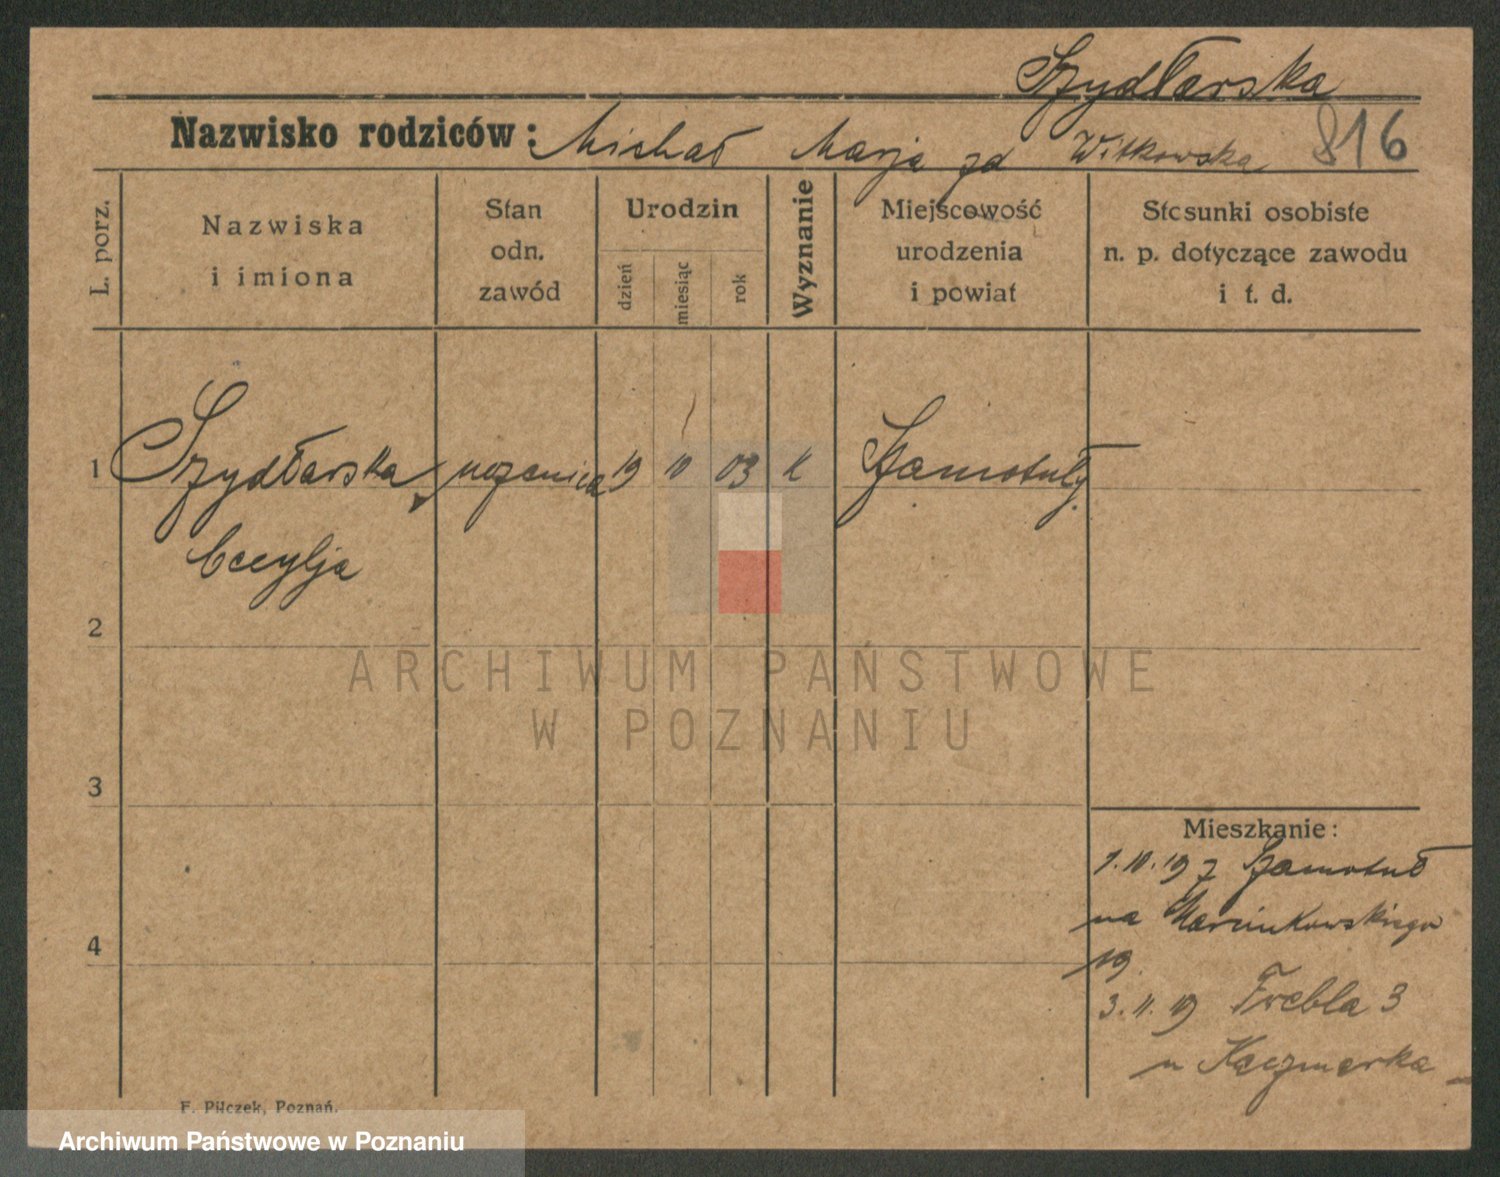 Szydłarska
Nazwisko rodziców: Michał Marja zd Witkowska 816
L. porz.
Nazwiska
i imiona
Stan
odn.
zawód
Urodzin
dzień
miesiąc
rok
Wyznanie
Miejscowość
urodzenia
i powiat
Stosunki osobiste
n. p. dotyczące zawodu
i t. d.
1 Szydłarska uczenica 19 10 03 k Szamotuły
Cecylja
2
ARCHIWUM PAŃSTWOWE
W POZNANIU
3
Mieszkanie:
1.10.19 z Szamotuł
na Marcinkowskiego
4
19.
3.11.19 Frebla 3
u Kaczmarka
F. Pilczek, Poznań.
Archiwum Państwowe w Poznaniu